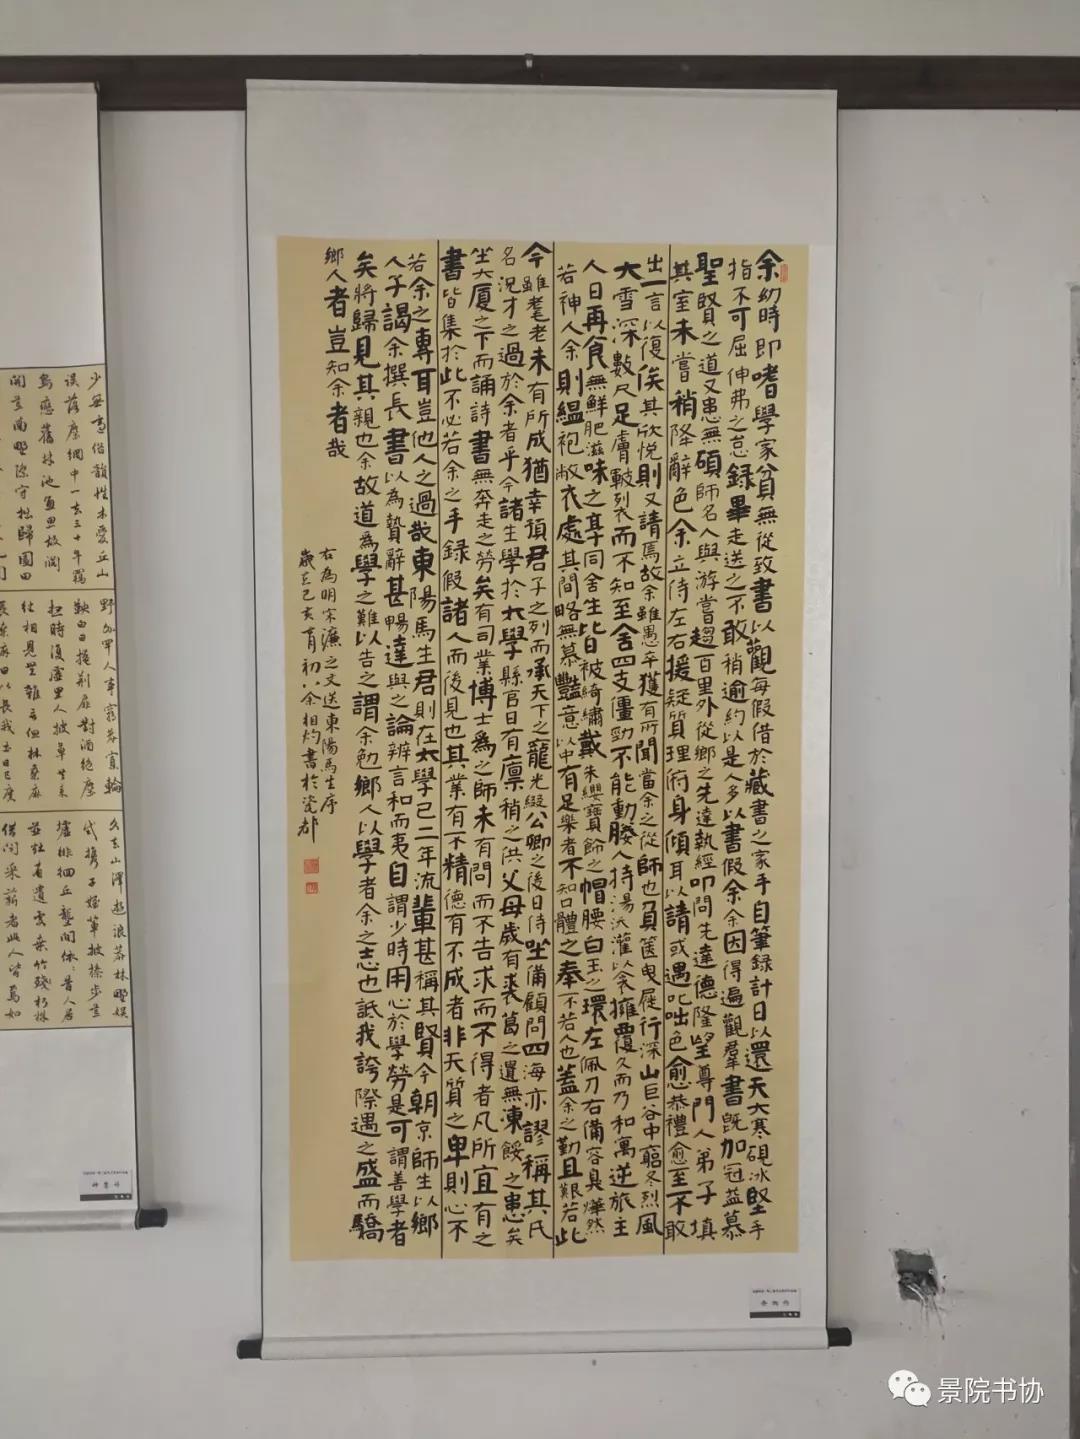 余幼時即嗜學家貧無從致書以觀每假借於藏書之家手自筆錄計日以還天大寒硯冰堅手
指不可屈伸弗之怠錄畢走送之不敢稍逾約以是人多以書假余余因得遍觀羣書既加冠益慕
聖賢之道又患無碩師名人與游嘗趨百里外從鄉之先達執經叩問先達德隆望尊門人弟子填
其室未嘗稍降辭色余立侍左右援疑質理俯身傾耳以請或遇叱咄色愈恭禮愈至不敢
出一言以復俟其欣悅則又請焉故余雖愚卒獲有所聞當余之從師也負篋曳屣行深山巨谷中窮冬烈風
大雪深數尺足膚皸裂而不知至舍四支僵勁不能動媵人持湯沃灌以衾擁覆久而乃和寓逆旅主
人日再食無鮮肥滋味之享同舍生皆被綺繡戴朱纓寶飾之帽腰白玉之環左佩刀右備容臭燁然
若神人余則縕袍敝衣處其間略無慕豔意以中有足樂者不知口體之奉不若人也蓋余之勤且艱若此
今雖耄老未有所成猶幸預君子之列而承天下之寵光綴公卿之後日侍坐備顧問四海亦謬稱其氏
名況才之過於余者乎今諸生學於太學縣官日有廩稍之供父母歲有裘葛之遺無凍餒之患矣
坐大廈之下而誦詩書無奔走之勞矣有司業博士為之師未有問而不告求而不得者凡所宜有之
書皆集於此不必若余之手錄假諸人而後見也其業有不精德有不成者非天質之卑則心不
若余之專耳豈他人之過哉東陽馬生君則在太學已二年流輩甚稱其賢今朝京師生以鄉
人子謁余撰長書以為贄辭甚暢達與之論辨言和而夷自謂少時用心於學勞是可謂善學者
矣將歸見其親也余故道為學之難以告之謂余勉鄉人以學者余之志也詆我誇際遇之盛而驕
鄉人者豈知余者哉
右為明宋濂之文送東陽馬生序
歲在己亥育初以余相灼書於瓷都
少無適俗韻性本愛丘山
誤落塵網中一去三十年羈
鳥戀舊林池魚思故淵
開荒南野際守拙歸園田
野外罕人事窮巷寡輪
鞅白日掩荊扉對酒絕塵
想時復墟里人披草共來
往相見無雜言但話桑麻
長桑麻日以長我土日已廣
久去山澤遊浪莽林野娛
試攜子姪輩披榛步荒
墟徘徊丘壟間依依昔人居
井竈有遺處桑竹殘朽株
借問採薪者此人皆焉如
景院书协